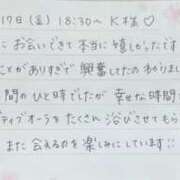 17日(金) 18:30〜 K様♡
にお会いできて本当に嬉しかったです
ことがありすぎて興奮したのわかりまし
間のひと時でしたが幸せな時間
ティブオーラをたくさん浴びさせてもら
また会えるのを楽しみにしています!!